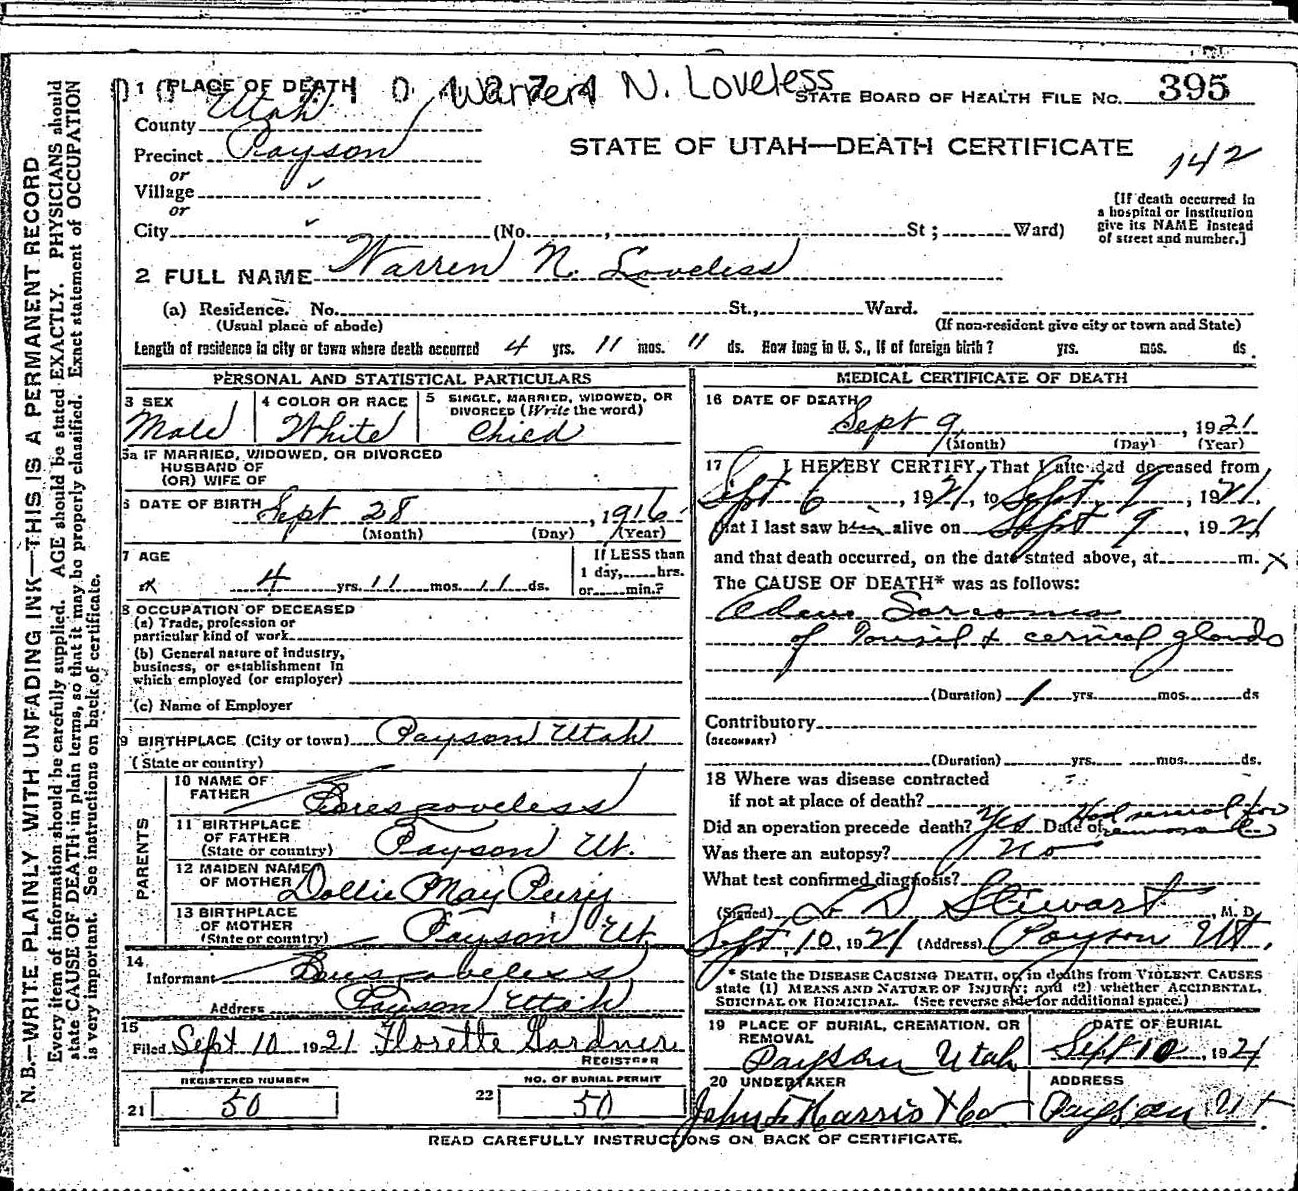 N. B.—WRITE PLAINLY WITH UNFADING INK—THIS IS A PERMANENT RECORD
Every item of information should be carefully supplied. AGE should be stated EXACTLY. PHYSICIANS should
state CAUSE OF DEATH in plain terms, so that it may be properly classified. Exact statement of OCCUPATION
is very important. See instructions on back of certificate.
Warren N. Loveless
1 PLACE OF DEATH
STATE BOARD OF HEALTH FILE NO. 395
County Utah
STATE OF UTAH—DEATH CERTIFICATE
142
Precinct Payson
or
Village
or
City (No. , St ; Ward)
[If death occurred in
a hospital or institution
give its NAME instead
of street and number.]
2 FULL NAME Warren N. Loveless
(a) Residence. No. St., Ward.
(Usual place of abode) (If non-resident give city or town and State)
Length of residence in city or town where death occurred 4 yrs. 11 mos. 11 ds. How long in U. S., if of foreign birth? yrs. mos. ds.
PERSONAL AND STATISTICAL PARTICULARS
3 SEX Male
4 COLOR OR RACE White
5 SINGLE, MARRIED, WIDOWED, OR
DIVORCED (Write the word)
Child
5a IF MARRIED, WIDOWED, OR DIVORCED
HUSBAND OF
(OR) WIFE OF
6 DATE OF BIRTH Sept 28, 1916
(Month) (Day) (Year)
7 AGE
4 yrs. 11 mos. 11 ds.
If LESS than
1 day, hrs.
or min.?
8 OCCUPATION OF DECEASED
(a) Trade, profession or
particular kind of work
(b) General nature of industry,
business, or establishment in
which employed (or employer)
(c) Name of Employer
9 BIRTHPLACE (City or town) Payson Utah
(State or country)
PARENTS
10 NAME OF
FATHER Loveless
11 BIRTHPLACE
OF FATHER
(State or country) Payson Ut.
12 MAIDEN NAME
OF MOTHER Dollie May Peery
13 BIRTHPLACE
OF MOTHER
(State or country) Payson Ut
14
Informant Loveless
Address Payson Utah
15
Filed Sept 10 1921 Florette Gardner
REGISTRER
REGISTERED NUMBER
21 50
NO. OF BURIAL PERMIT
22 50
MEDICAL CERTIFICATE OF DEATH
16 DATE OF DEATH
Sept 9, 1921
(Month) (Day) (Year)
17 I HEREBY CERTIFY, That I attended deceased from
Sept 6, 1921, to Sept 9, 1921
that I last saw him alive on Sept 9, 1921
and that death occurred, on the date stated above, at m. X
The CAUSE OF DEATH* was as follows:
Adeno Sarcoma
of Tonsil & cervical glands
(Duration) 1 yrs. mos. ds
Contributory
(SECONDARY)
(Duration) yrs. mos. ds.
18 Where was disease contracted
if not at place of death?
Did an operation precede death? Yes Date of Had several for
removal
Was there an autopsy? No
What test confirmed diagnosis?
(Signed) L D Stewart, M. D
Sept. 10, 1921 (Address) Payson Ut.
* State the DISEASE CAUSING DEATH, or in deaths from VIOLENT CAUSES
state (1) MEANS AND NATURE OF INJURY; and (2) whether ACCIDENTAL,
SUICIDAL OR HOMICIDAL. (See reverse side for additional space.)
19 PLACE OF BURIAL, CREMATION, OR
REMOVAL
Payson Utah
DATE OF BURIAL
Sept 10, 1921
20 UNDERTAKER
Harris & Co
ADDRESS
Payson Ut
READ CAREFULLY INSTRUCTIONS ON BACK OF CERTIFICATE.